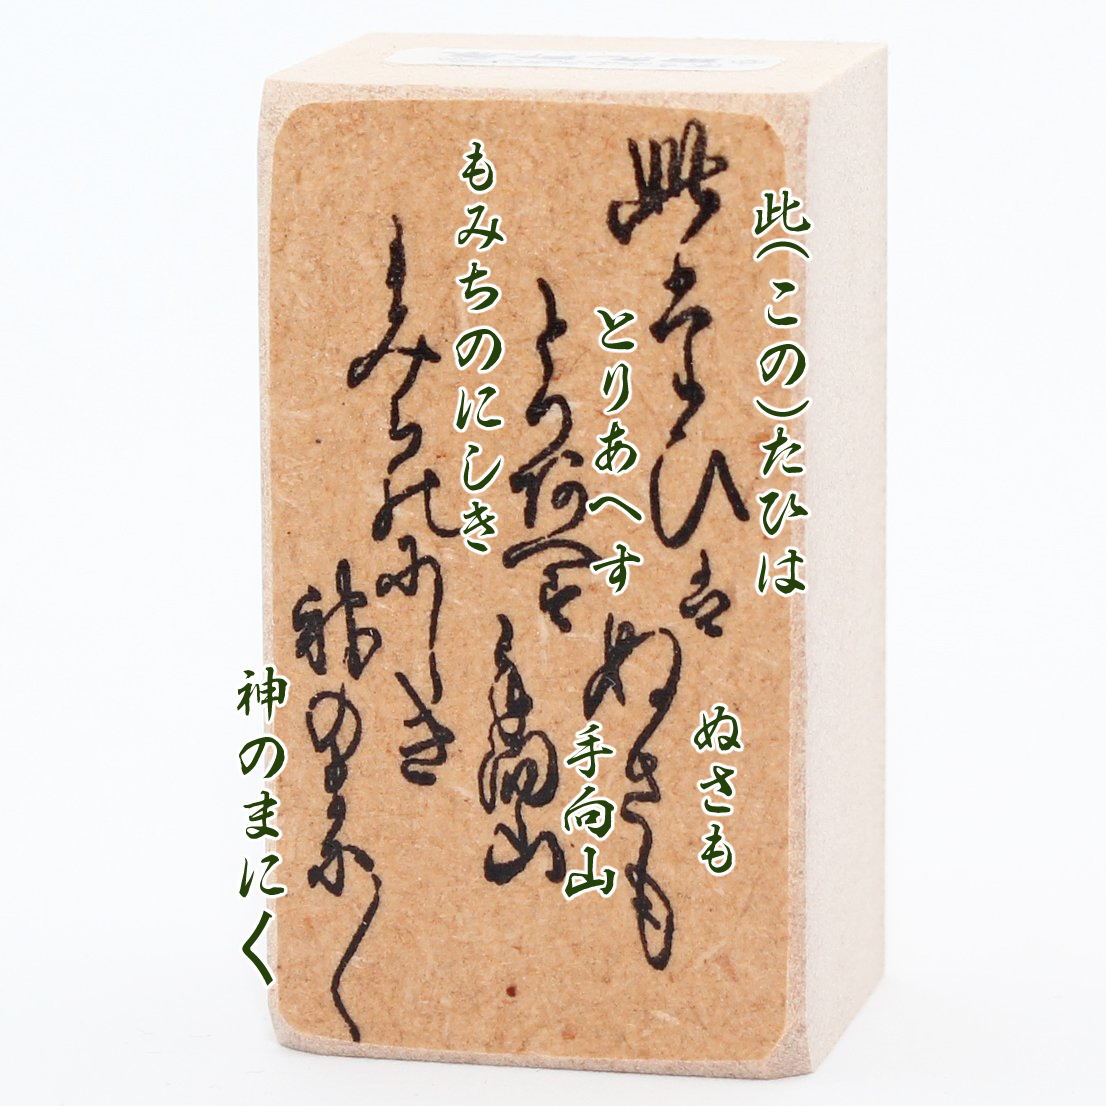 此(この)たひは
ぬさも
とりあへす
手向山
もみちのにしき
神のまにく